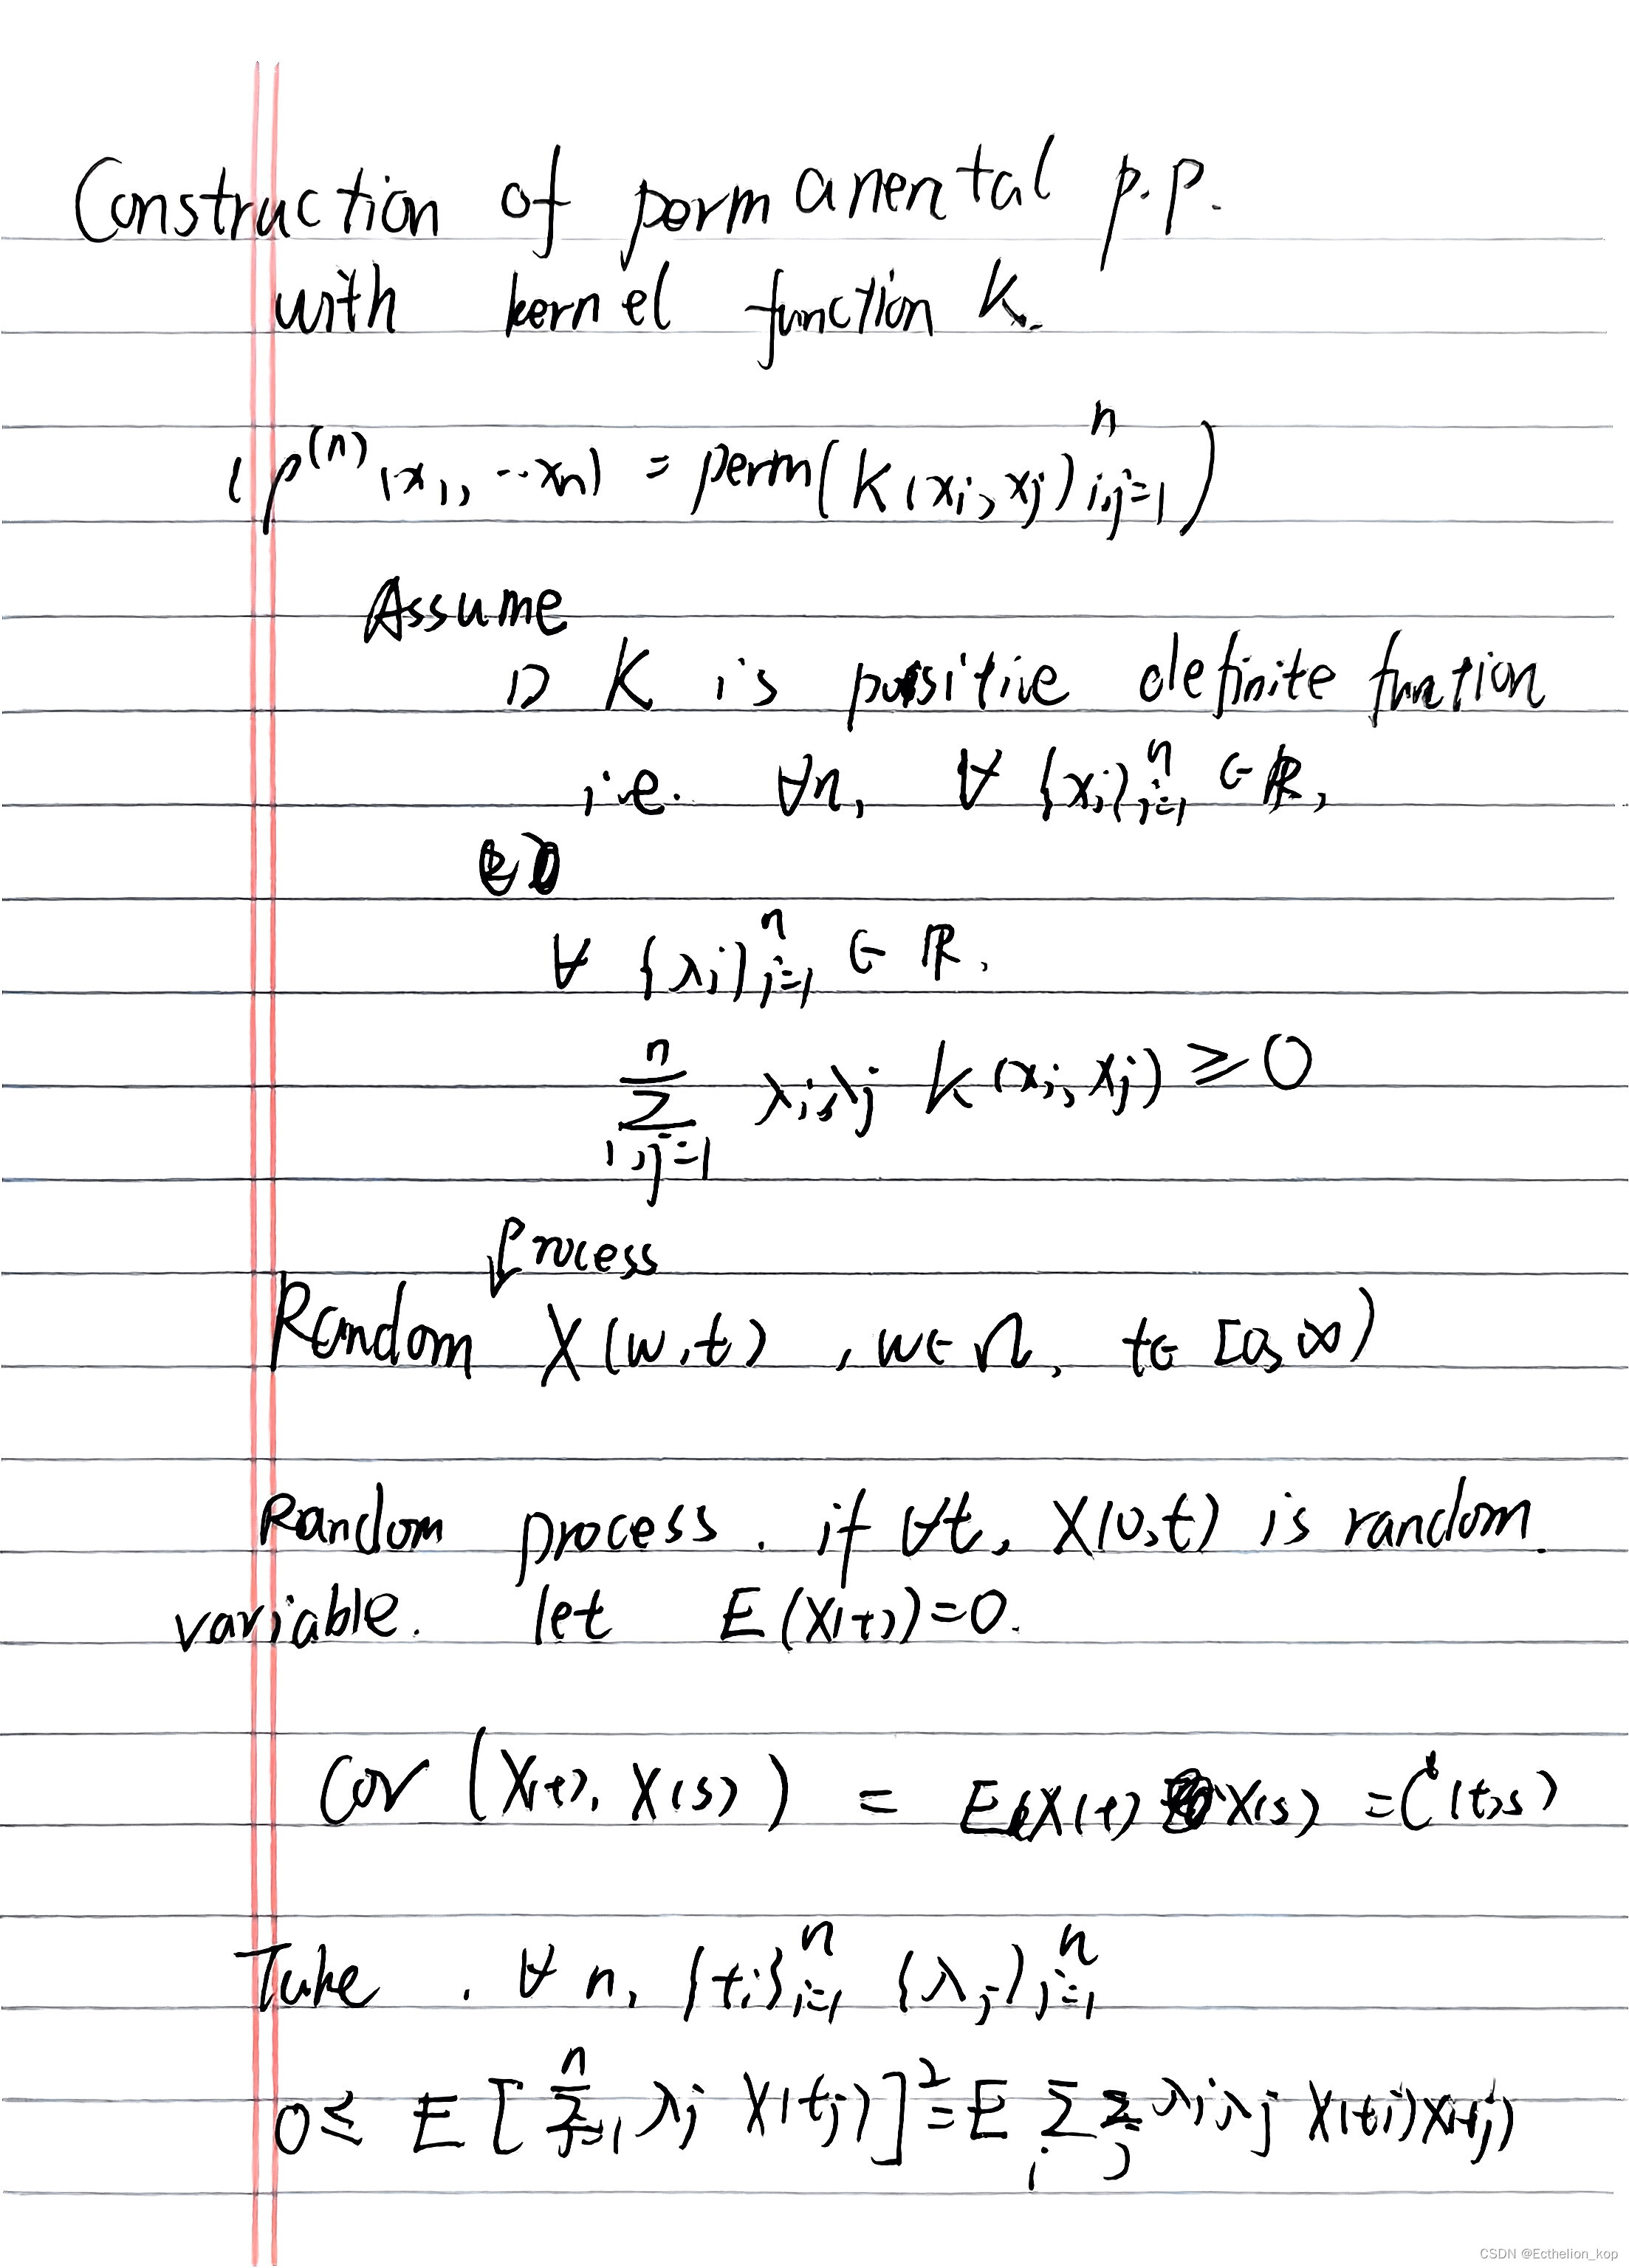 Construction of permanental p.p.
with kernel function K.
( ρ^(n) (x_1, ··x_n) = perm( K(x_i, x_j)_{i,j=1}^n )
Assume
1) K is positive definite function
i.e. ∀n, ∀ {x_i}_{i=1}^n ∈ ℝ,
∀ {λ_i}_{i=1}^n ∈ ℝ.
∑_{i,j=1}^n λ_i λ_j K(x_i, x_j) ≥ 0
Process
Random X(w,t) , w∈Ω, t∈[0,∞)
Random process. if ∀t, X(0,t) is random
variable. let E(X(t))=0.
Cov (X(t), X(s)) = E(X(t) X(s) = C(t,s)
Take . ∀ n, {t_i}_{i=1}^n {λ_j}_{j=1}^n
0≤ E [ ∑_{j=1}^n λ_j X(t_j) ]^2 = E ∑_i ∑_j λ_i λ_j X(t_i) X(t_j)
CSDN @Ecthelion_kop